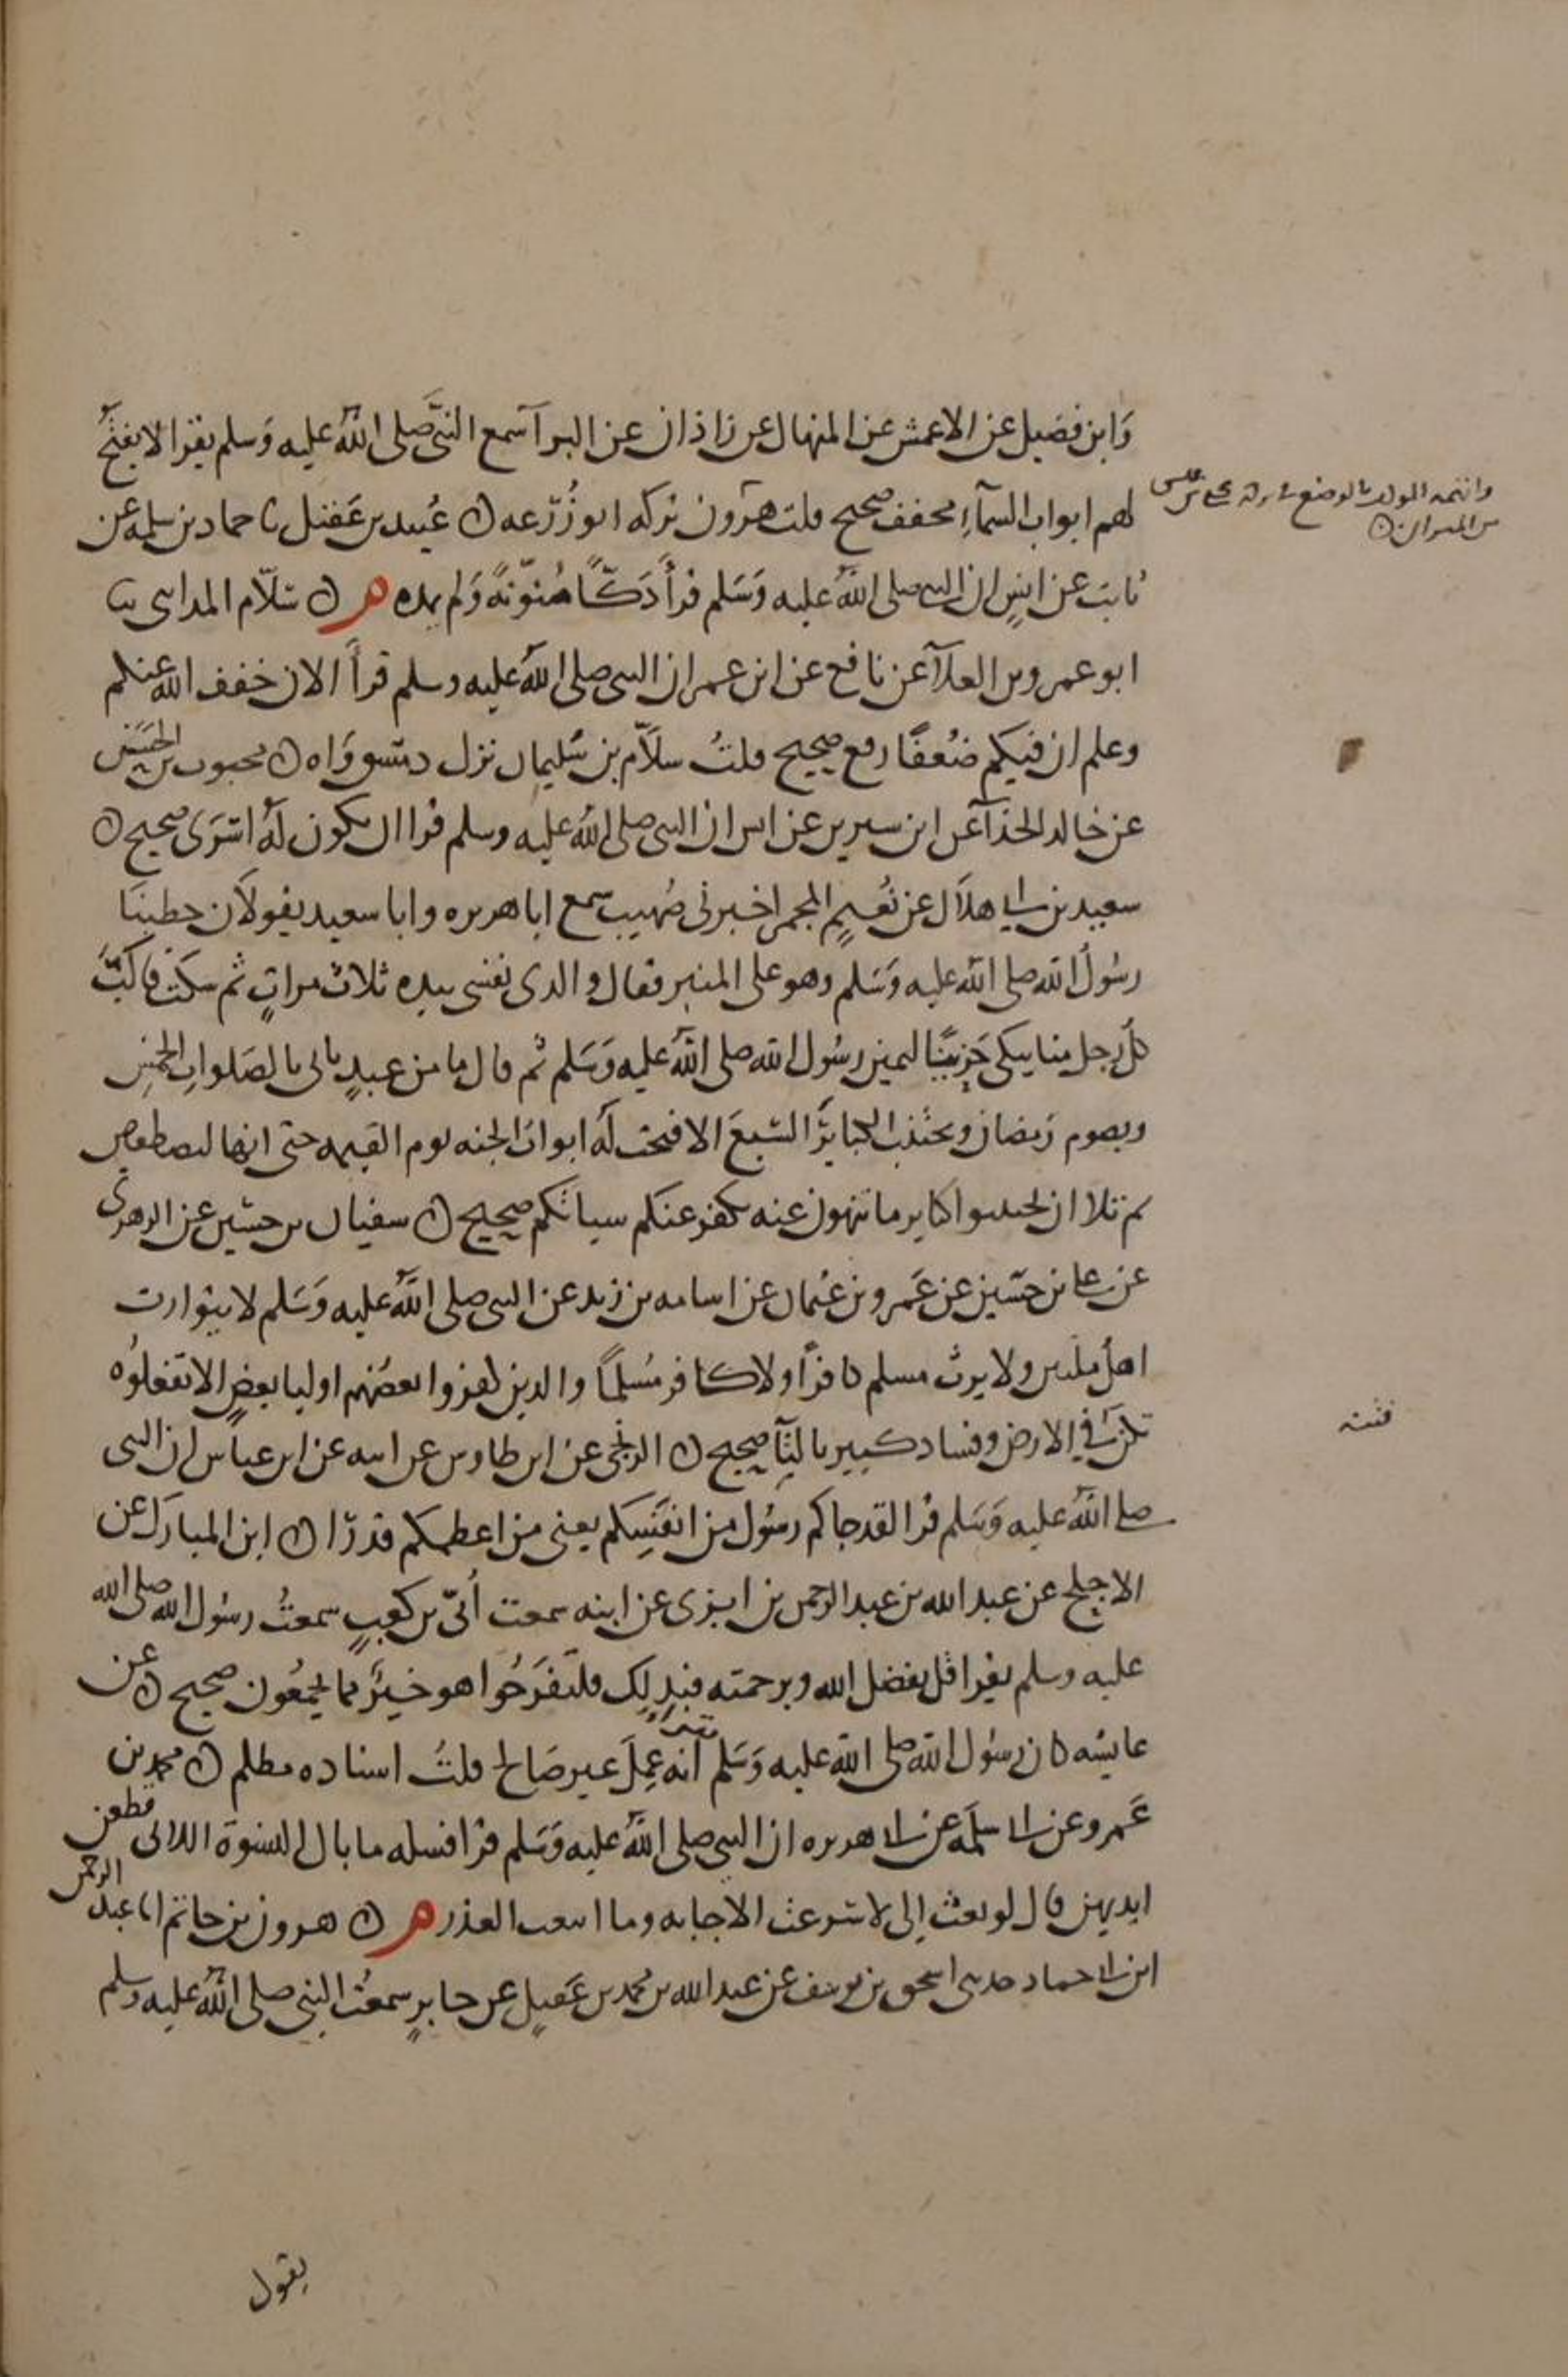 وَابن فضيل عن الاعمش عن المنهال عن زاذان عن البرآ سمع النبيَّ صلى اللهُ عليه وَسلم يقرا لا يفتحُ
لهم ابواب السمآءِ مخفف صحيح قلت هرون تركه ابو زُرْعه ن عُبيد بن عَقيل نا حماد بن سلمه عن
ثابت عن انسٍ ان النبي صلى اللهُ عليه وَسَلم قرأَ دَكًّا مُنوّنهً وَلم يمده م ن سَلاّم المدايني نا
ابو عمرو بن العلآ عن نافع عن ابن عمر ان النبي صلى اللهُ عليه وسلم قرأَ الان خفف الله عنكم
وعلم ان فيكم ضُعفًا رفع صحيح قلتُ سلاَّم بن سُليمان نزل دمشق وَاه ن محبوب بن الحسَن
عن خالد الحذآ عن ابن سيرين عن انس ان النبي صلى اللهُ عليه وسلم قرا ان يكون لهُ اسْرَى صحيح ن
سعيد بن ابي هلاَل عن نُعيمٍ المجمر اخبرني صُهيب سمع ابا هريره وابا سعيد يقولاَن خطبنَا
رسُولُ الله صلى الله عليه وَسَلم وهو على المنبر فقال والذي نفسي بيده ثلاث مراتٍ ثم سكت فاكبَّ
كلُّ رجل منا يبكي حَزينًا ليمين رسُول الله صلى اللهُ عليه وَسَلم ثم قال ما من عبدٍ ياتي بالصَلواتِ الخمسِ
ويصوم رَمضان ويجتنب الكبايرَ السَبعَ الا فتحت لَه ابوابُ الجنه يوم القيمه حتى انها لتصطفق
ثم تلا ان تجتنبوا كباير ما تنهون عنه نكفر عنكم سياتكم صحيح ن سفيان بن حسَين عن الزهري
عن علي بن حسَين عن عَمرو بن عثمان عن اسامه بن زيد عن النبي صلى اللهُ عليه وَسَلم لا يتوارث
اهلُ ملتين ولا يرث مسلم كافرًا ولا كافر مُسلمًا والذين كفروا بعضُهم اوليا بعضٍ الا تفعلوُه
تكن في الارض وفساد كبير بالثآ صحيح ن الزنجي عن ابن طاوس عن ابيه عن ابن عباس ان النبي
صلى اللهُ عليه وَسَلم قرا لقد جاكم رسُول من انفَسِكم يعني من اعظمكم قدرًا ن ابن المبارَك عن
الاجلح عن عبد الله بن عبد الرحمن بن ابزى عن ابيه سمعت أُبيّ بن كعبٍ سمعتُ رسُول الله صلى الله
عليه وسلم يقرا قل بفضل الله وبرحمته فبذلك فلتفرَحُوا هو خيرٌ مما تجمعُون صحيح ن عن
عايشه كان رسُول الله صلى الله عليه وَسَلم يقرا انه عَمِلَ غير صَالح قلتُ اسناده مظلم ن محمد بن
عَمرو عن ابي سلَمه عن ابي هريره ان النبي صلى اللهُ عليه وَسَلم قرا فسله ما بال النسوة اللاتي قطعن
ايديهن قال لو بعث إلي لاسْرعت الاجابه وما ابتغيت العذر م ن هرون بن حاتم انا عبد الرحمن
ابن ابي حماد حدثني اسحق بن يوسف عن عبد الله بن محمد بن عَقيلٍ عن جابرٍ سمعْتُ النبي صلى اللهُ عليه وسلم
من الميزان ن
فتنه
يقول